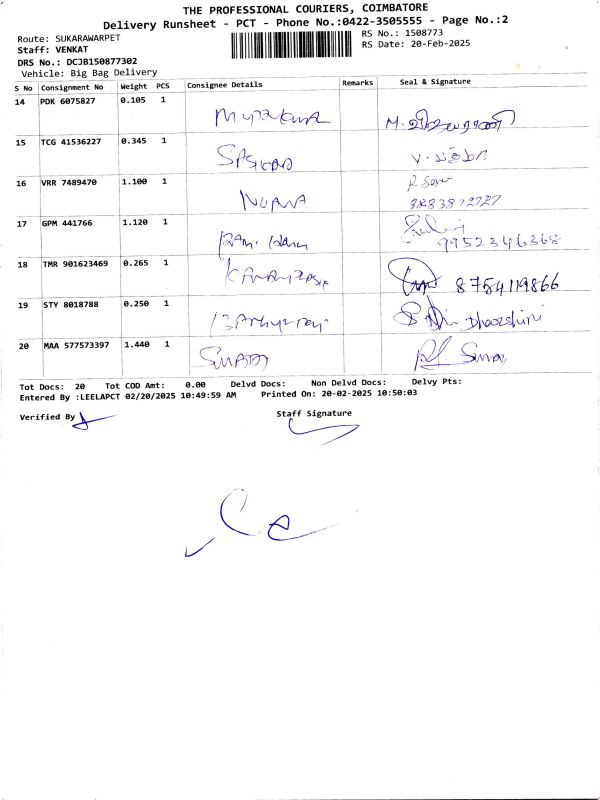 THE PROFESSIONAL COURIERS, COIMBATORE
Delivery Runsheet - PCT - Phone No.:0422-3505555 - Page No.:2
Route: SUKARAWARPET
RS No.: 1508773
Staff: VENKAT
RS Date: 20-Feb-2025
DRS No.: DCJB150877302
Vehicle: Big Bag Delivery
S No Consignment No Weight PCS Consignee Details Remarks Seal & Signature
14 PDK 6075827 0.105 1
15 TCG 41536227 0.345 1
16 VRR 7489470 1.100 1
17 GPM 441766 1.120 1
9952346368
18 TMR 901623469 0.265 1
8754119866
19 STY 8018788 0.250 1
Dhaarshini
20 MAA 577573397 1.440 1
Tot Docs: 20 Tot COD Amt: 0.00 Delvd Docs: Non Delvd Docs: Delvy Pts:
Entered By :LEELAPCT 02/20/2025 10:49:59 AM Printed On: 20-02-2025 10:50:03
Verified By
Staff Signature